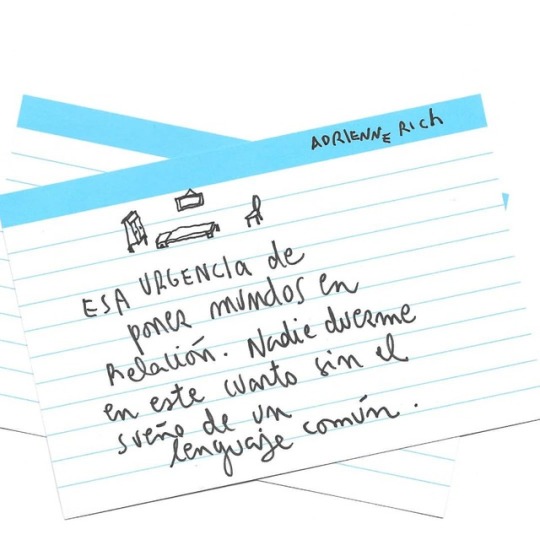 ADRIENNE RICH
ESA URGENCIA de
poner mundos en
Relación. Nadie duerme
en este cuarto sin el
sueño de un
lenguaje común.